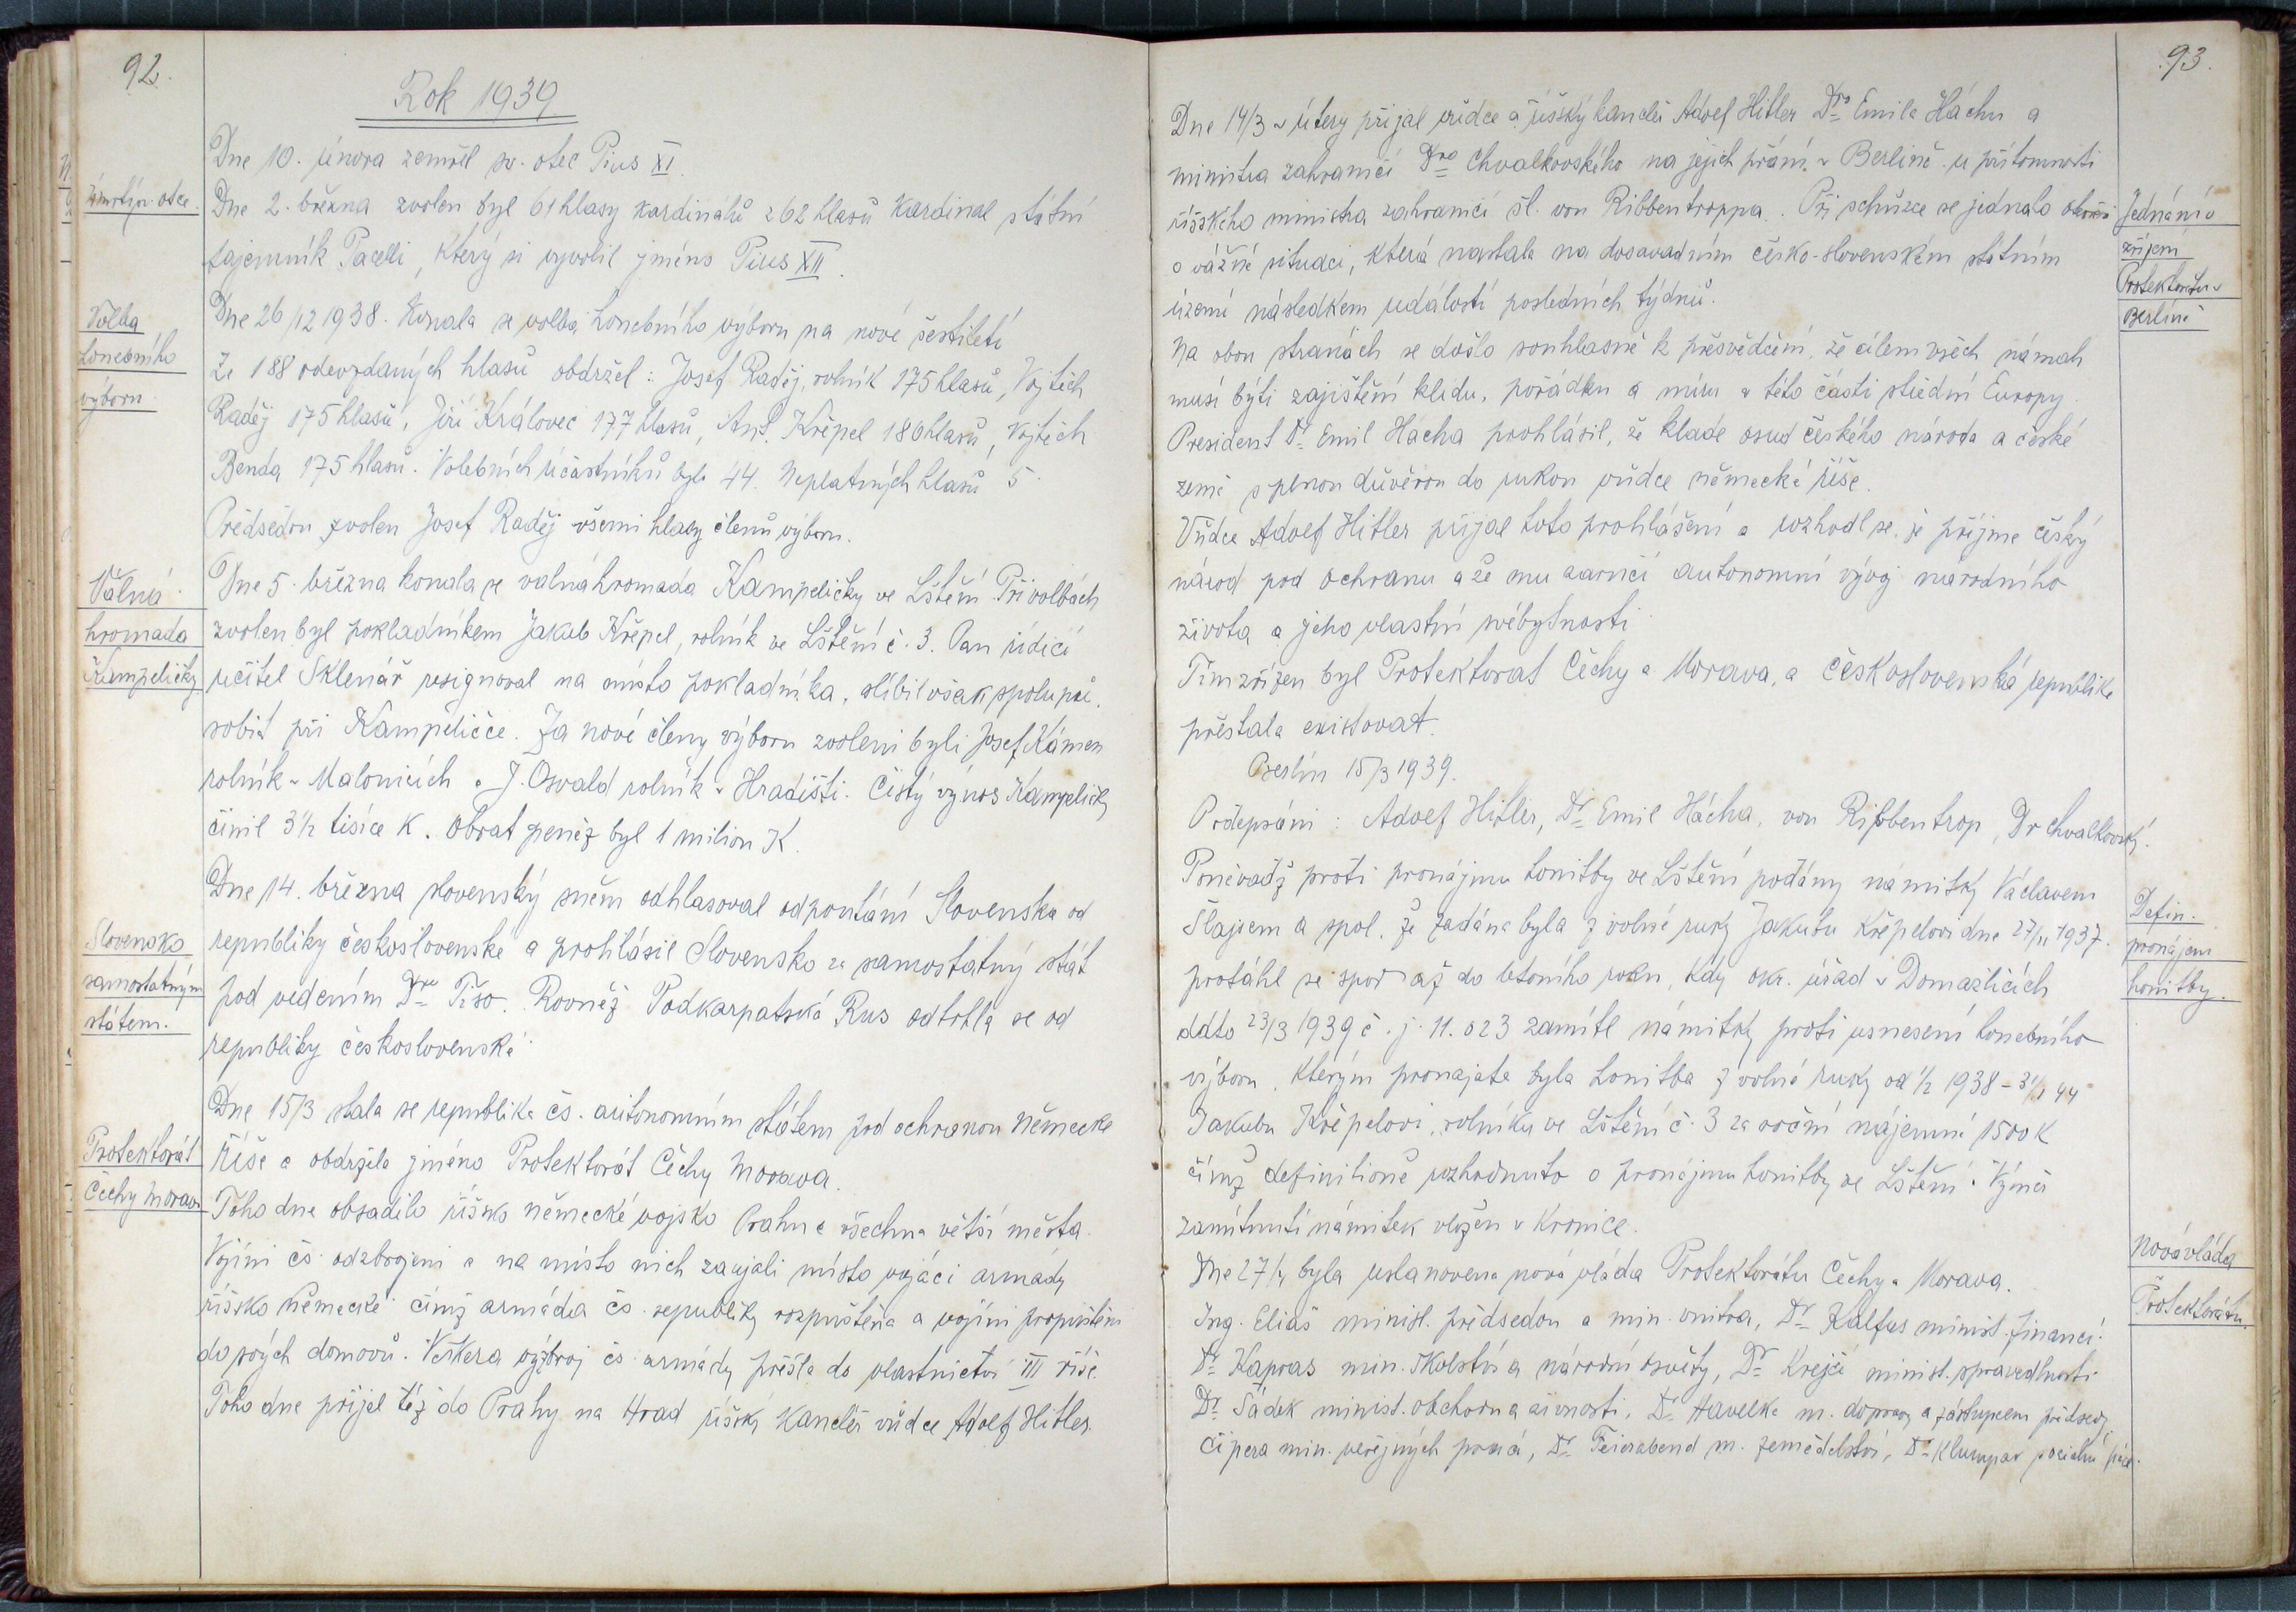 92.
Rok 1939
Dne 10. února zemřel sv. otec Pius XI.
Úmrtí sv. otce.
Dne 2. března zvolen byl 61 hlasy kardinálů z 62 hlasů Kardinal státní
tajemník Pacelli, který si vyvolil jméno Pius XII.
Volba
honebního
výboru
Dne 26/12 1938. Konala se volba honebního výboru na nové šestiletí
Ze 188 odevzdaných hlasů obdržel: Josef Raděj, rolník 175 hlasů, Vojtěch
Raděj 175 hlasů, Jiří Královec 177 hlasů, Ant. Křépel 180 hlasů, Vojtěch
Benda 175 hlasů. Volebních účastníků bylo 44. Neplatných hlasů 5.
Předsedou zvolen Josef Raděj všemi hlasy členů výboru.
Valná
hromada
Kampeličky
Dne 5. března konala se valná hromada Kampeličky ve Lštění. Při volbách
zvolen byl pokladníkem Jakub Křépel, rolník ve Lštění č. 3. Pan řídící
učitel Sklenář resignoval na místo pokladníka, slíbil však spolupů-
sobit při Kampeličce. Za nové členy výboru zvoleni byli Josef Kámen
rolník v Malonicích a J. Osvald rolník v Hradišti. Čistý výnos Kampeličky
činil 3 1/2 tisíce K. Obrat peněz byl 1 milion K.
Slovensko
samostatným
státem.
Dne 14. března slovenský sněm odhlasoval odpoutání Slovenska od
republiky československé a prohlásil Slovensko za samostatný stát
pod vedením Dra Tiso. Rovněž Podkarpatská Rus odtrhla se od
republiky československé.
Protektorát
Čechy Morava
Dne 15/3 stala se republika čs. autonomním státem pod ochranou Německé
Říše a obdržela jméno Protektorát Čechy Morava.
Toho dne obsadilo říšsko německé vojsko Prahu a všechna větší města.
Vojíni čs. odzbrojeni a na místo nich zaujali místo vojáci armády
říšsko německé čímž armáda čs. republiky rozpuštěna a vojíni propuštěni
do svých domovů. Veškera výzbroj čs. armády přešla do vlastnictví III říše.
Toho dne přijel též do Prahy na Hrad říšský Kancléř vůdce Adolf Hitler.
93.
Dne 14/3 v úterý přijal vůdce a říšský kancléř Adolf Hitler Dra Emila Háchu a
ministra zahraničí Dra Chvalkovského na jejich přání v Berlíně u přítomnosti
říšského ministra zahraničí sl. von Ribbentroppa. Při schůzce se jednalo
o vážné situaci, která nastala na dosavadním česko-slovenském státním
území následkem událostí posledních týdnů.
Jednání o
zřízení
Protektorátu v
Berlíně
Na obou stranách se došlo souhlasně k přesvědčení, že cílem všech námah
musí býti zajištění klidu, pořádku a míru v této části střední Europy.
President Dr Emil Hácha prohlásil, že klade osud českého národa a české
země s plnou důvěrou do rukou vůdce německé říše.
Vůdce Adolf Hitler přijal toto prohlášení a rozhodl se, že přijme český
národ pod ochranu a že mu zaručí autonomní vývoj národního
života a jeho vlastní svébytnosti.
Tím zřízen byl Protektorat Čechy a Morava, a Československá republika
přestala existovat.
Berlín 15/3 1939.
Podepsáni: Adolf Hitler, Dr Emil Hácha, von Ribbentrop, Dr Chvalkovský.
Defin.
pronájem
honitby.
Poněvadž proti pronájmu honitby ve Lštění podány namitky Václavem
Šlajsem a spol. že zadána byla z volné ruky Jakubu Křépelovi dne 27/11 1937.
protáhl se spor až do letoního roku, kdy okr. úřad v Domažlicích
ddto 23/3 1939 č. j. 11.023 zamítl námitky proti usnesení honebního
výboru, kterým pronajata byla honitba z volné ruky od 1/2 1938 – 31/1 44
Jakubu Křépelovi, rolníku ve Lštění č. 3 za roční nájemné 1500 K
čímž definitivně rozhodnuto o pronájmu honitby ve Lštění. Výměr
zamítnutí námitek vložen v Kronice.
Nová vláda
Protektorátu.
Dne 27/4 byla ustanovena nová vláda Protektorátu Čechy a Morava.
Ing. Eliáš minist. předsedou a min. vnitra, Dr Kalfus minist. financí.
Dr Kapras min. školství a národní osvěty, Dr Krejčí minist. spravedlnosti.
Dr Šádek minist. obchodu a živnosti, Dr Havelka m. dopravy a zástupcem předsedy
Čipera min. veřejných prací, Dr Feierabend m. zemědelství, Dr Klumpar sociální péče.